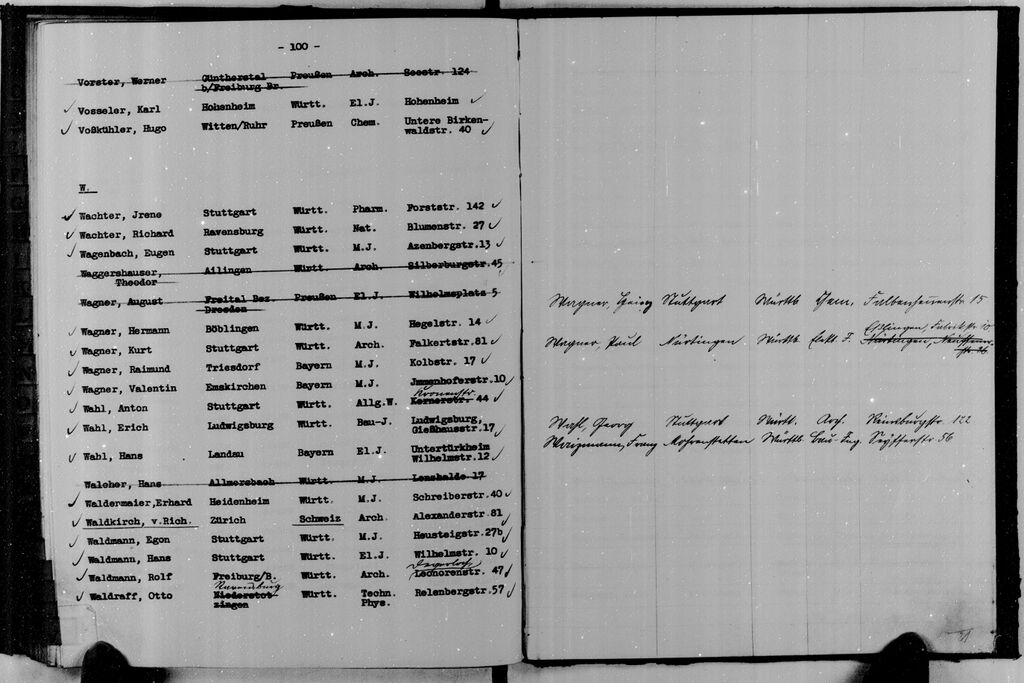 - 100 -
Vorster, Werner Güntherstal Preußen Arch. Seestr. 124
b/Freiburg Br.
Vosseler, Karl Hohenheim Württ. El.J. Hohenheim
Voßkühler, Hugo Witten/Ruhr Preußen Chem. Untere Birken-
waldstr. 40
W.
Wachter, Jrene Stuttgart Württ. Pharm. Forststr. 142
Wachter, Richard Ravensburg Württ. Nat. Blumenstr. 27
Wagenbach, Eugen Stuttgart Württ. M.J. Azenbergstr.13
Waggershauser, Ailingen Württ. Arch. Silberburgstr.45
Theodor
Wagner, August Freital Bez. Preußen El.J. Wilhelmsplatz 5
Dresden
Wagner, Hermann Böblingen Württ. M.J. Hegelstr. 14
Wagner, Kurt Stuttgart Württ. Arch. Falkertstr.81
Wagner, Raimund Triesdorf Bayern M.J. Kolbstr. 17
Wagner, Valentin Emskirchen Bayern M.J. Jmmenhoferstr.10
Kronenstr.
Wahl, Anton Stuttgart Württ. Allg.W. Kernerstr. 44
Wahl, Erich Ludwigsburg Württ. Bau-J. Ludwigsburg,
Gießhausstr.17
Wahl, Hans Landau Bayern El.J. Untertürkheim
Wilhelmstr.12
Walcher, Hans Allmersbach Württ. M.J. Lenzhalde 17
Waldermaier,Erhard Heidenheim Württ. M.J. Schreiberstr.40
Waldkirch, v.Rich. Zürich Schweiz Arch. Alexanderstr.81
Waldmann, Egon Stuttgart Württ. M.J. Heusteigstr.27b
Waldmann, Hans Stuttgart Württ. El.J. Wilhelmstr. 10
Degerloch
Waldmann, Rolf Freiburg/B. Württ. Arch. Leonorenstr. 47
Ravensburg
Waldraff, Otto Niederstot- Württ. Techn. Relenbergstr.57
zingen Phys.
Wagner, Georg Stuttgart Württb Chem. 15
Eßlingen, Fabrikstr. 10
Wagner, Paul Nürtingen Württb Elekt. J. Nürtingen,
str. 26
Wahl, Georg Stuttgart Württ. Arch. Reinsburgstr. 122
Waizmann, Franz Württb Bau-Ing. 56